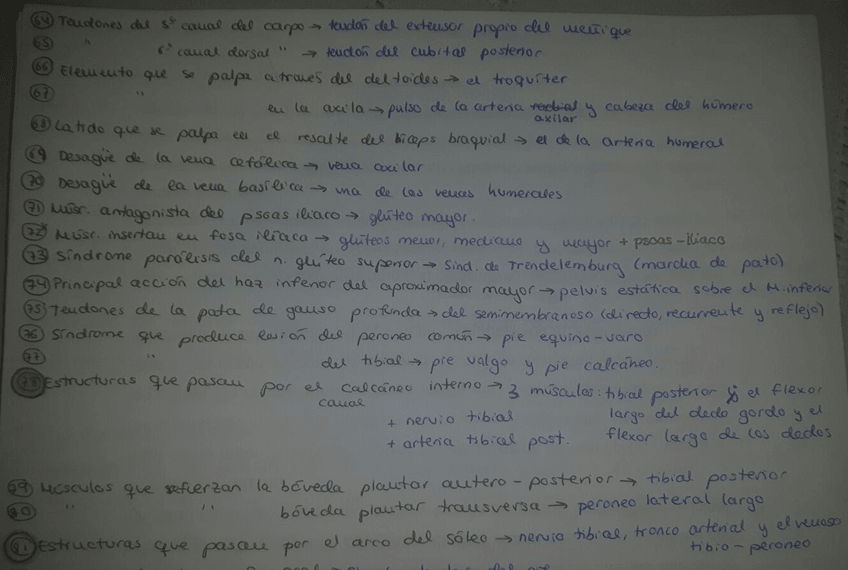 64 Tendones del 5º canal del carpo → tendón del extensor propio del meñique
65 " 6º canal dorsal " → tendón del cubital posterior
66 Elemento que se palpa a través del deltoides → el troquíter
67 " en la axila → pulso de la arteria radial axilar y cabeza del húmero
68 Latido que se palpa en el resalte del bíceps braquial → el de la arteria humeral
69 Desagüe de la vena cefálica → vena axilar
70 Desagüe de la vena basílica → una de las venas humerales
71 Músc. antagonista del psoas iliaco → glúteo mayor.
72 Músc. insertan en fosa ilíaca → glúteos menor, mediano y mayor + psoas-iliaco
73 Síndrome parálisis del n. glúteo superior → sind. de Trendelemburg (marcha de pato)
74 Principal acción del haz inferior del aproximador mayor → pelvis estática sobre el M. inferior
75 Tendones de la pata de ganso profunda → del semimembranoso (directo, recurrente y reflejo)
76 Síndrome que produce lesión del peroneo común → pie equino-varo
77 " del tibial → pie valgo y pie calcáneo.
78 Estructuras que pasan por el calcáneo interno → 3 músculos: tibial posterior y el flexor
canal
+ nervio tibial largo del dedo gordo y el
+ arteria tibial post. flexor largo de los dedos
79 Músculos que refuerzan la bóveda plantar antero-posterior → tibial posterior
80 " " bóveda plantar transversa → peroneo lateral largo
81 Estructuras que pasan por el arco del sóleo → nervio tibial, tronco arterial y el venoso
tibio-peroneo